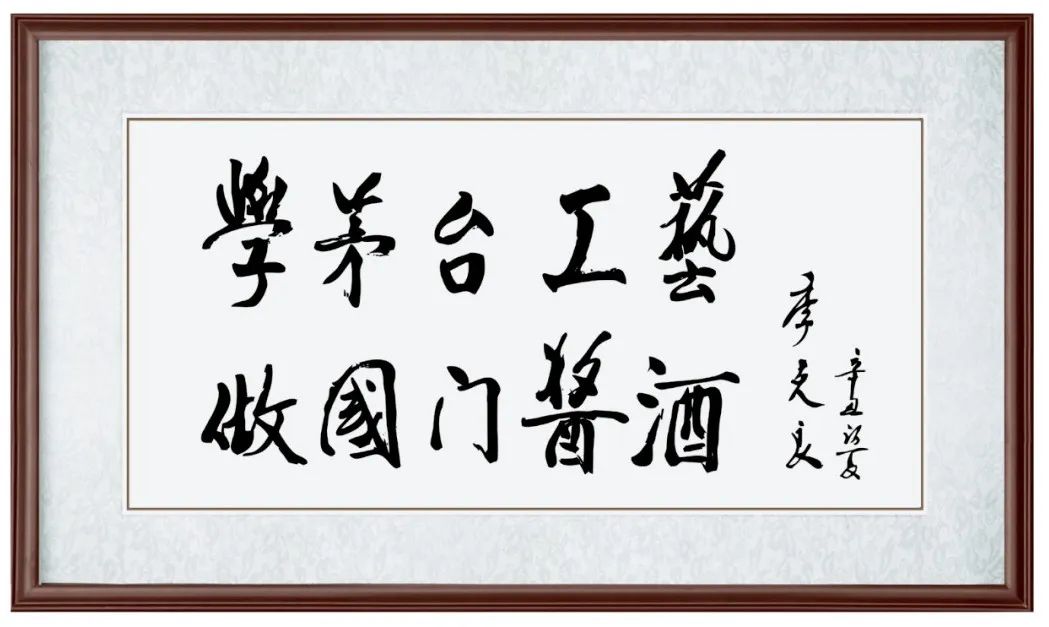 學茅台工藝
做國门醬酒
辛丑初夏
季克良